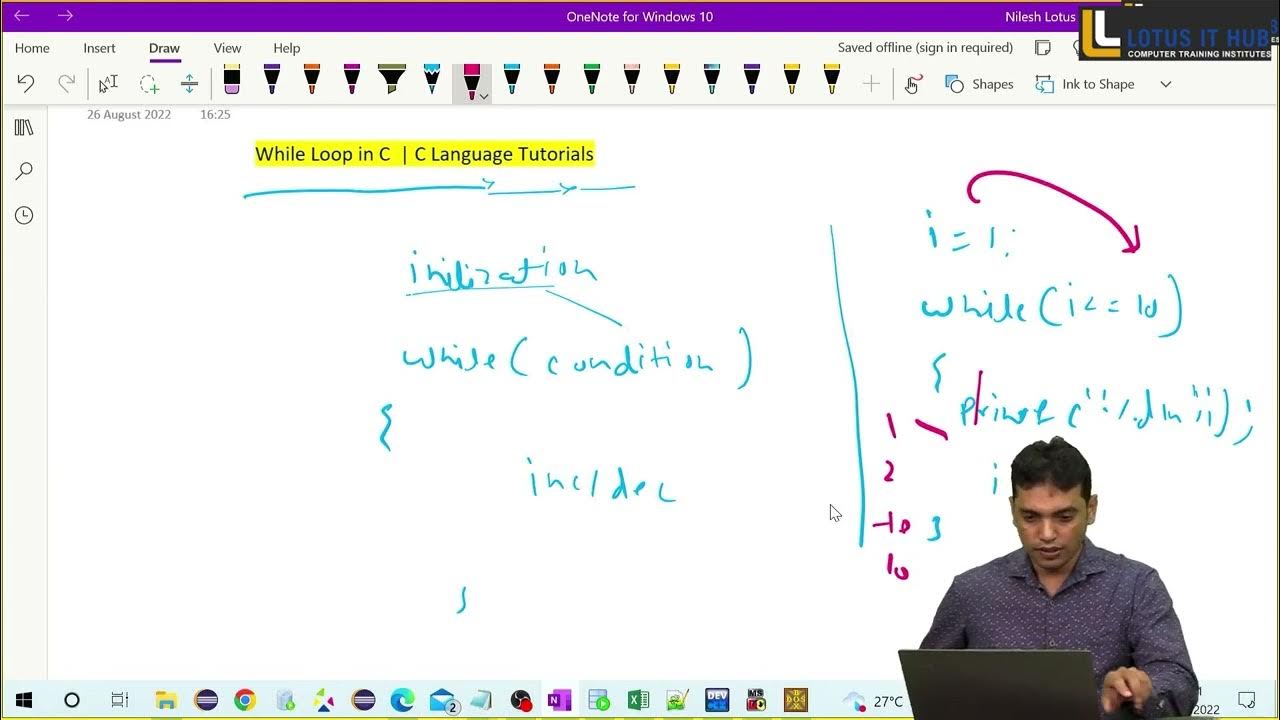 OneNote for Windows 10
Nilesh Lotus
LOTUS IT HUB
COMPUTER TRAINING INSTITUTES
Home Insert Draw View Help
Saved offline (sign in required)
Shapes
Ink to Shape
26 August 2022 16:25
While Loop in C | C Language Tutorials
i = 1;
inilization
while(i<=10)
while(condition)
{
{
1
2
i
inc/dec
10
10
}
27°C
2022
2
DEV
MS
DOS